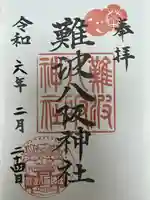 奉拝
難波八阪神社
令和六年二月二十四日
難波
神社